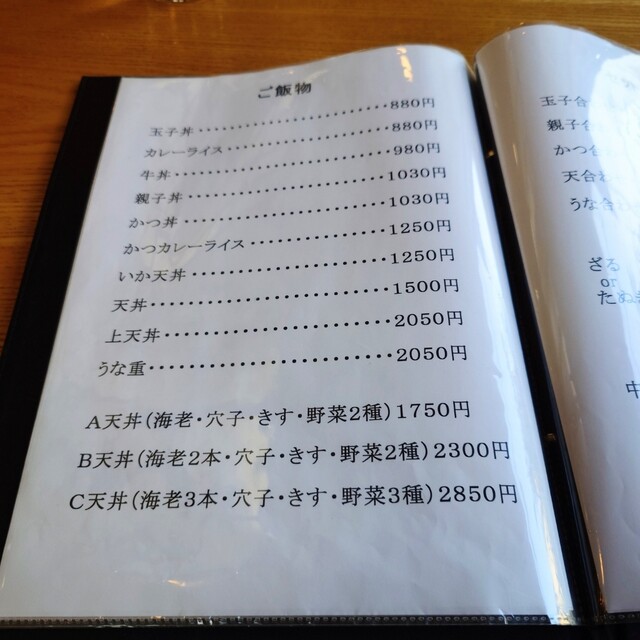 ご飯物
玉子丼・・・・・・・・・・・・・・・・・・・・880円
カレーライス・・・・・・・・・・・・・・・・880円
牛丼・・・・・・・・・・・・・・・・・・・・・・980円
親子丼・・・・・・・・・・・・・・・・・・・・1030円
かつ丼・・・・・・・・・・・・・・・・・・・・1030円
かつカレーライス・・・・・・・・・・・・・1250円
いか天丼・・・・・・・・・・・・・・・・・・・1250円
天丼・・・・・・・・・・・・・・・・・・・・・・1500円
上天丼・・・・・・・・・・・・・・・・・・・・2050円
うな重・・・・・・・・・・・・・・・・・・・・2050円
A天丼(海老・穴子・きす・野菜2種)1750円
B天丼(海老2本・穴子・きす・野菜2種)2300円
C天丼(海老3本・穴子・きす・野菜3種)2850円
玉子合
親子合
かつ合
天合わ
うな合
ざる
or
たぬき
中